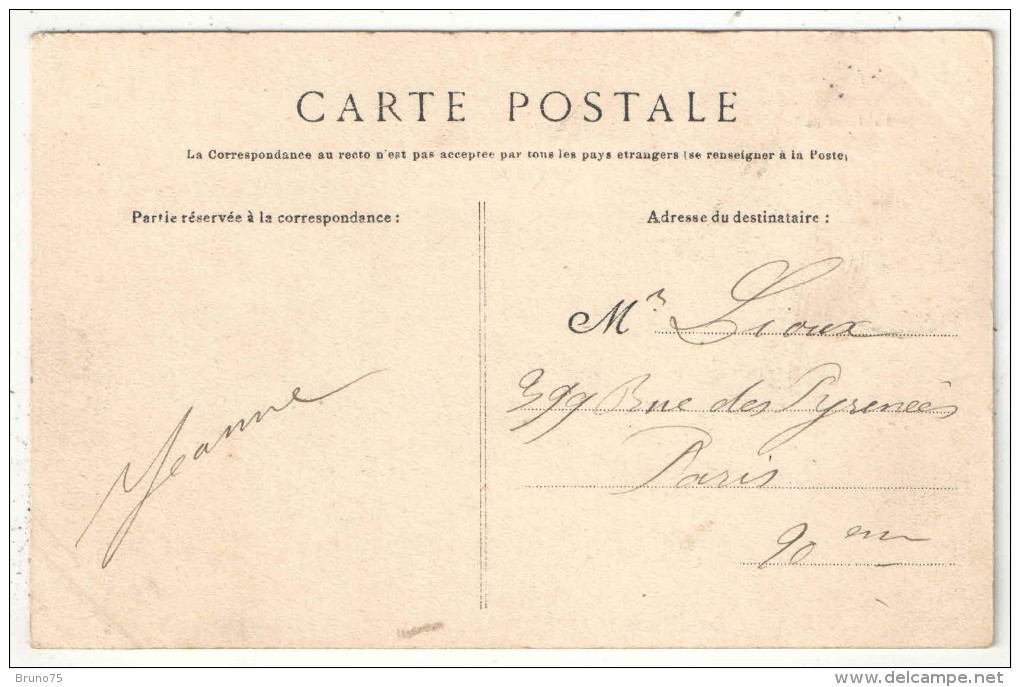 CARTE POSTALE
La Correspondance au recto n'est pas acceptee par tous les pays etrangers (se renseigner à la Poste)
Partie réservée à la correspondance :
Jeanne
Adresse du destinataire :
Mr Lioux
399 Rue des Pyrenées
Paris
20 em
Bruno75
delcampe.net